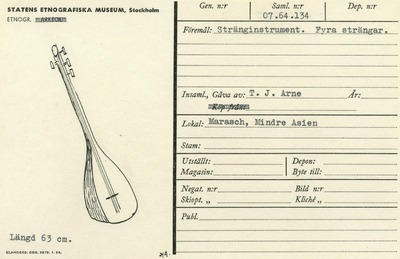 STATENS ETNOGRAFISKA MUSEUM, Stockholm
ETNOGR.
Längd 63 cm.
Gen. n:r Saml. n:r Dep. n:r
07.64.134
Föremål: Stränginstrument. Fyra strängar.
Insaml., Gåva av: T. J. Arne År:
Köp från:
Lokal: Marasch, Mindre Asien
Stam:
Utställt: Depon:
Magasin: Byte till:
Negat. n:r Bild n:r
Skiopt. „ Kliché „
Publ.